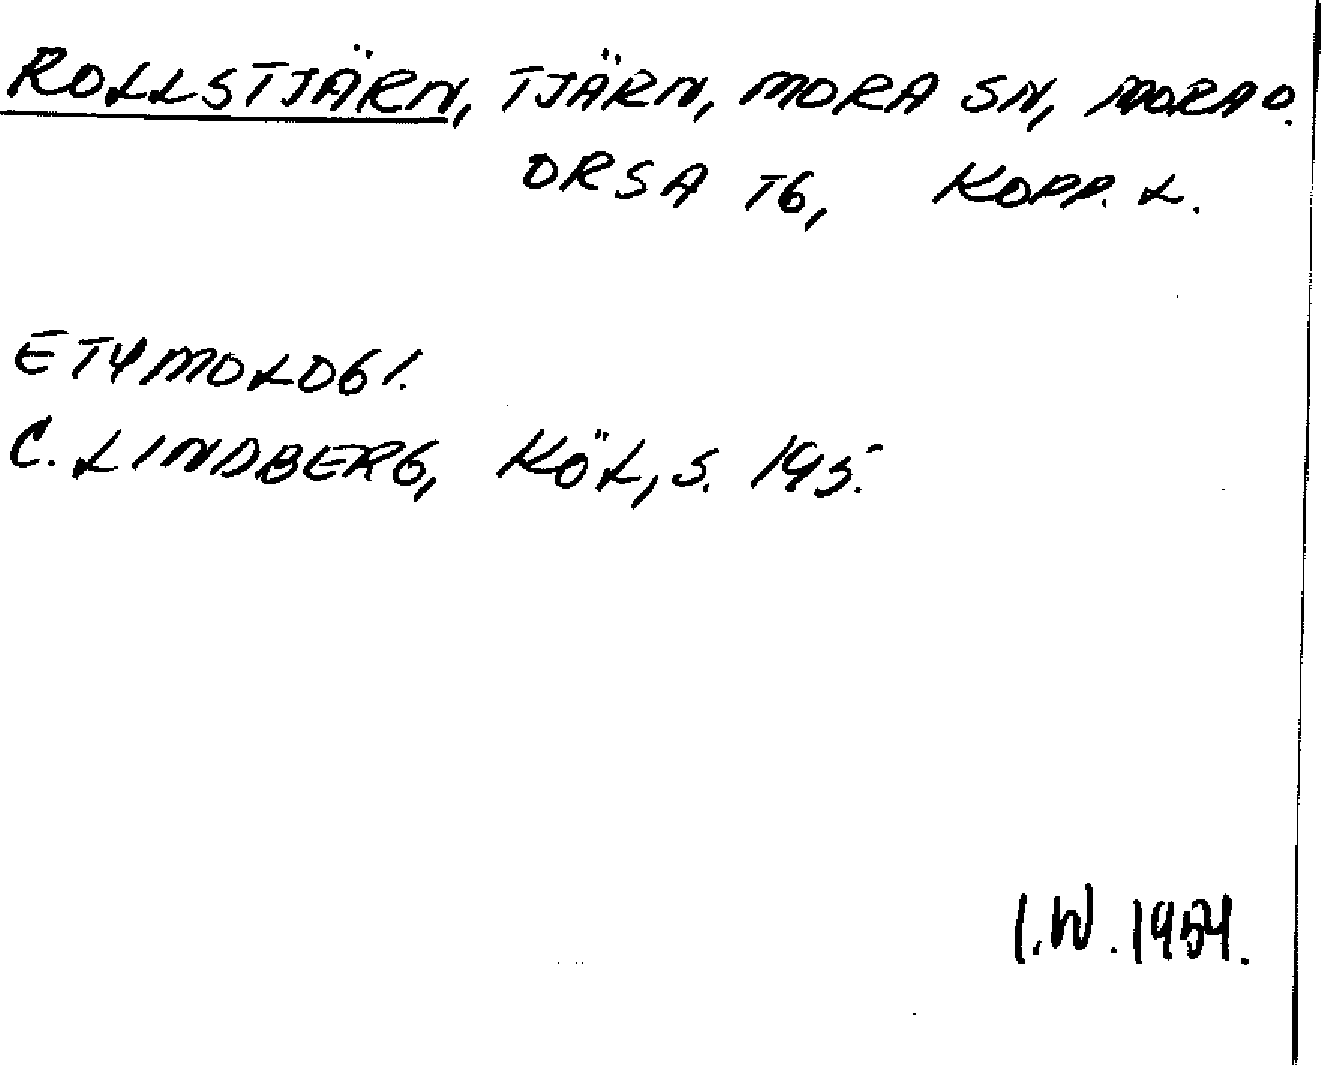 ROLLSTJÄRN, TJÄRN, MORA SN, MORA O.
ORSA TG, KOPP. L.
ETYMOLOGI.
C. LINDBERG, KÖL, S. 195.
I.W. 1954.